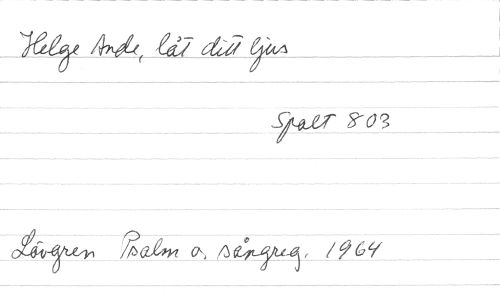 Helge Ande, låt ditt ljus
Spalt 803
Lövgren Psalm o. sångreg. 1964